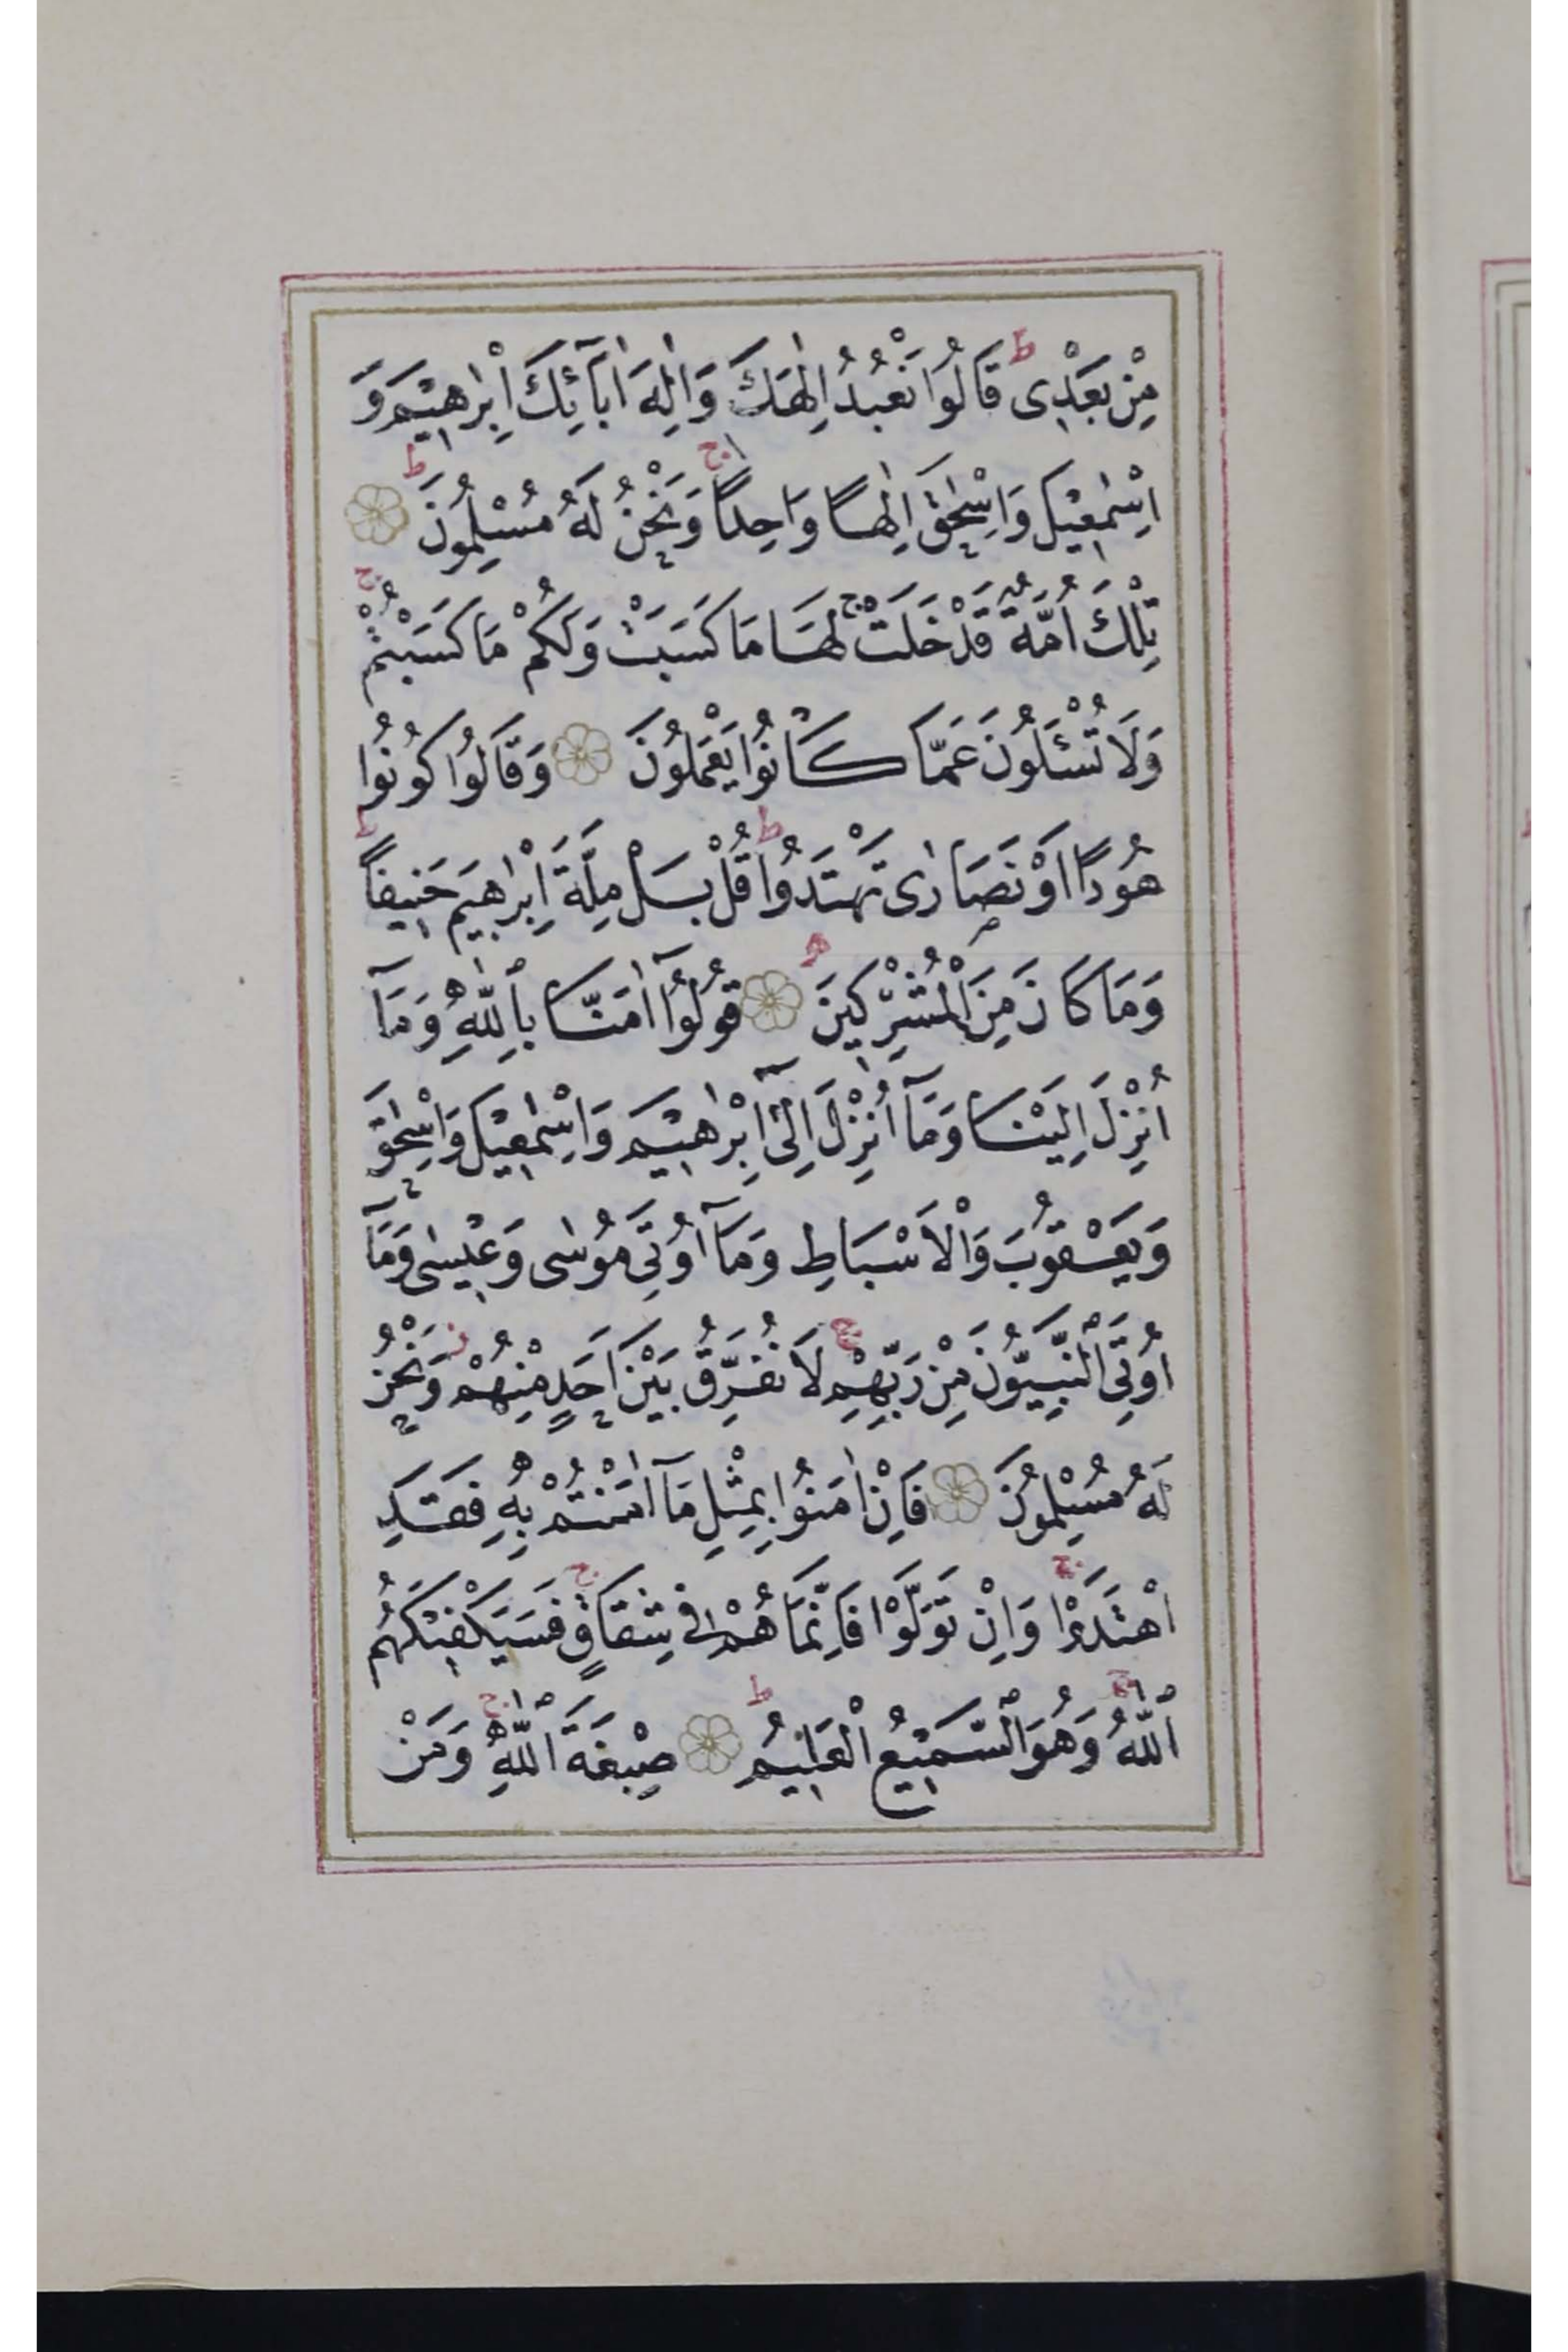 مِنْ بَعْدِى ط قَالُوا نَعْبُدُ اِلٰهَكَ وَاِلٰهَ اٰبَآئِكَ اِبْرٰهٖيمَ وَ
اِسْمٰعٖيلَ وَاِسْحٰقَ اِلٰهًا وَاحِدًا ج وَنَحْنُ لَهُ مُسْلِمُونَ ط
تِلْكَ اُمَّةٌ قَدْ خَلَتْ ج لَهَا مَا كَسَبَتْ وَلَكُمْ مَا كَسَبْتُمْ ج
وَلَا تُسْئَلُونَ عَمَّا كَانُوا يَعْمَلُونَ وَقَالُوا كُونُوا
هُودًا اَوْ نَصَارٰى تَهْتَدُوا ط قُلْ بَلْ مِلَّةَ اِبْرٰهٖيمَ حَنٖيفًا ط
وَمَا كَانَ مِنَ الْمُشْرِكٖينَ قُولُوٓا اٰمَنَّا بِاللّٰهِ وَمَآ
اُنْزِلَ اِلَيْنَا وَمَآ اُنْزِلَ اِلٰىٓ اِبْرٰهٖيمَ وَاِسْمٰعٖيلَ وَاِسْحٰقَ
وَيَعْقُوبَ وَالْاَسْبَاطِ وَمَآ اُوتِىَ مُوسٰى وَعٖيسٰى وَمَآ
اُوتِىَ النَّبِيُّونَ مِنْ رَبِّهِمْ ج لَا نُفَرِّقُ بَيْنَ اَحَدٍ مِنْهُمْ ز وَنَحْنُ
لَهُ مُسْلِمُونَ فَاِنْ اٰمَنُوا بِمِثْلِ مَآ اٰمَنْتُمْ بِهٖ فَقَدِ
اهْتَدَوْا ج وَاِنْ تَوَلَّوْا فَاِنَّمَا هُمْ فٖى شِقَاقٍ ج فَسَيَكْفٖيكَهُمُ
اللّٰهُ ج وَهُوَ السَّمٖيعُ الْعَلٖيمُ ط صِبْغَةَ اللّٰهِ ج وَمَنْ